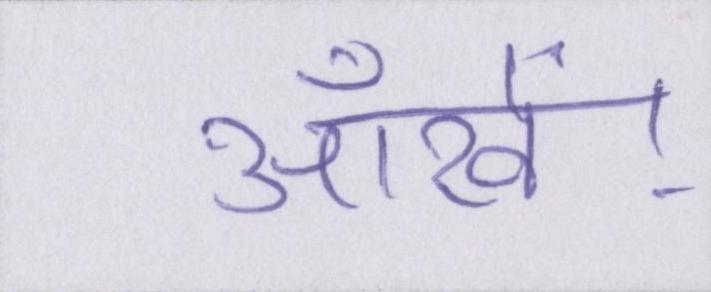 आँखें!